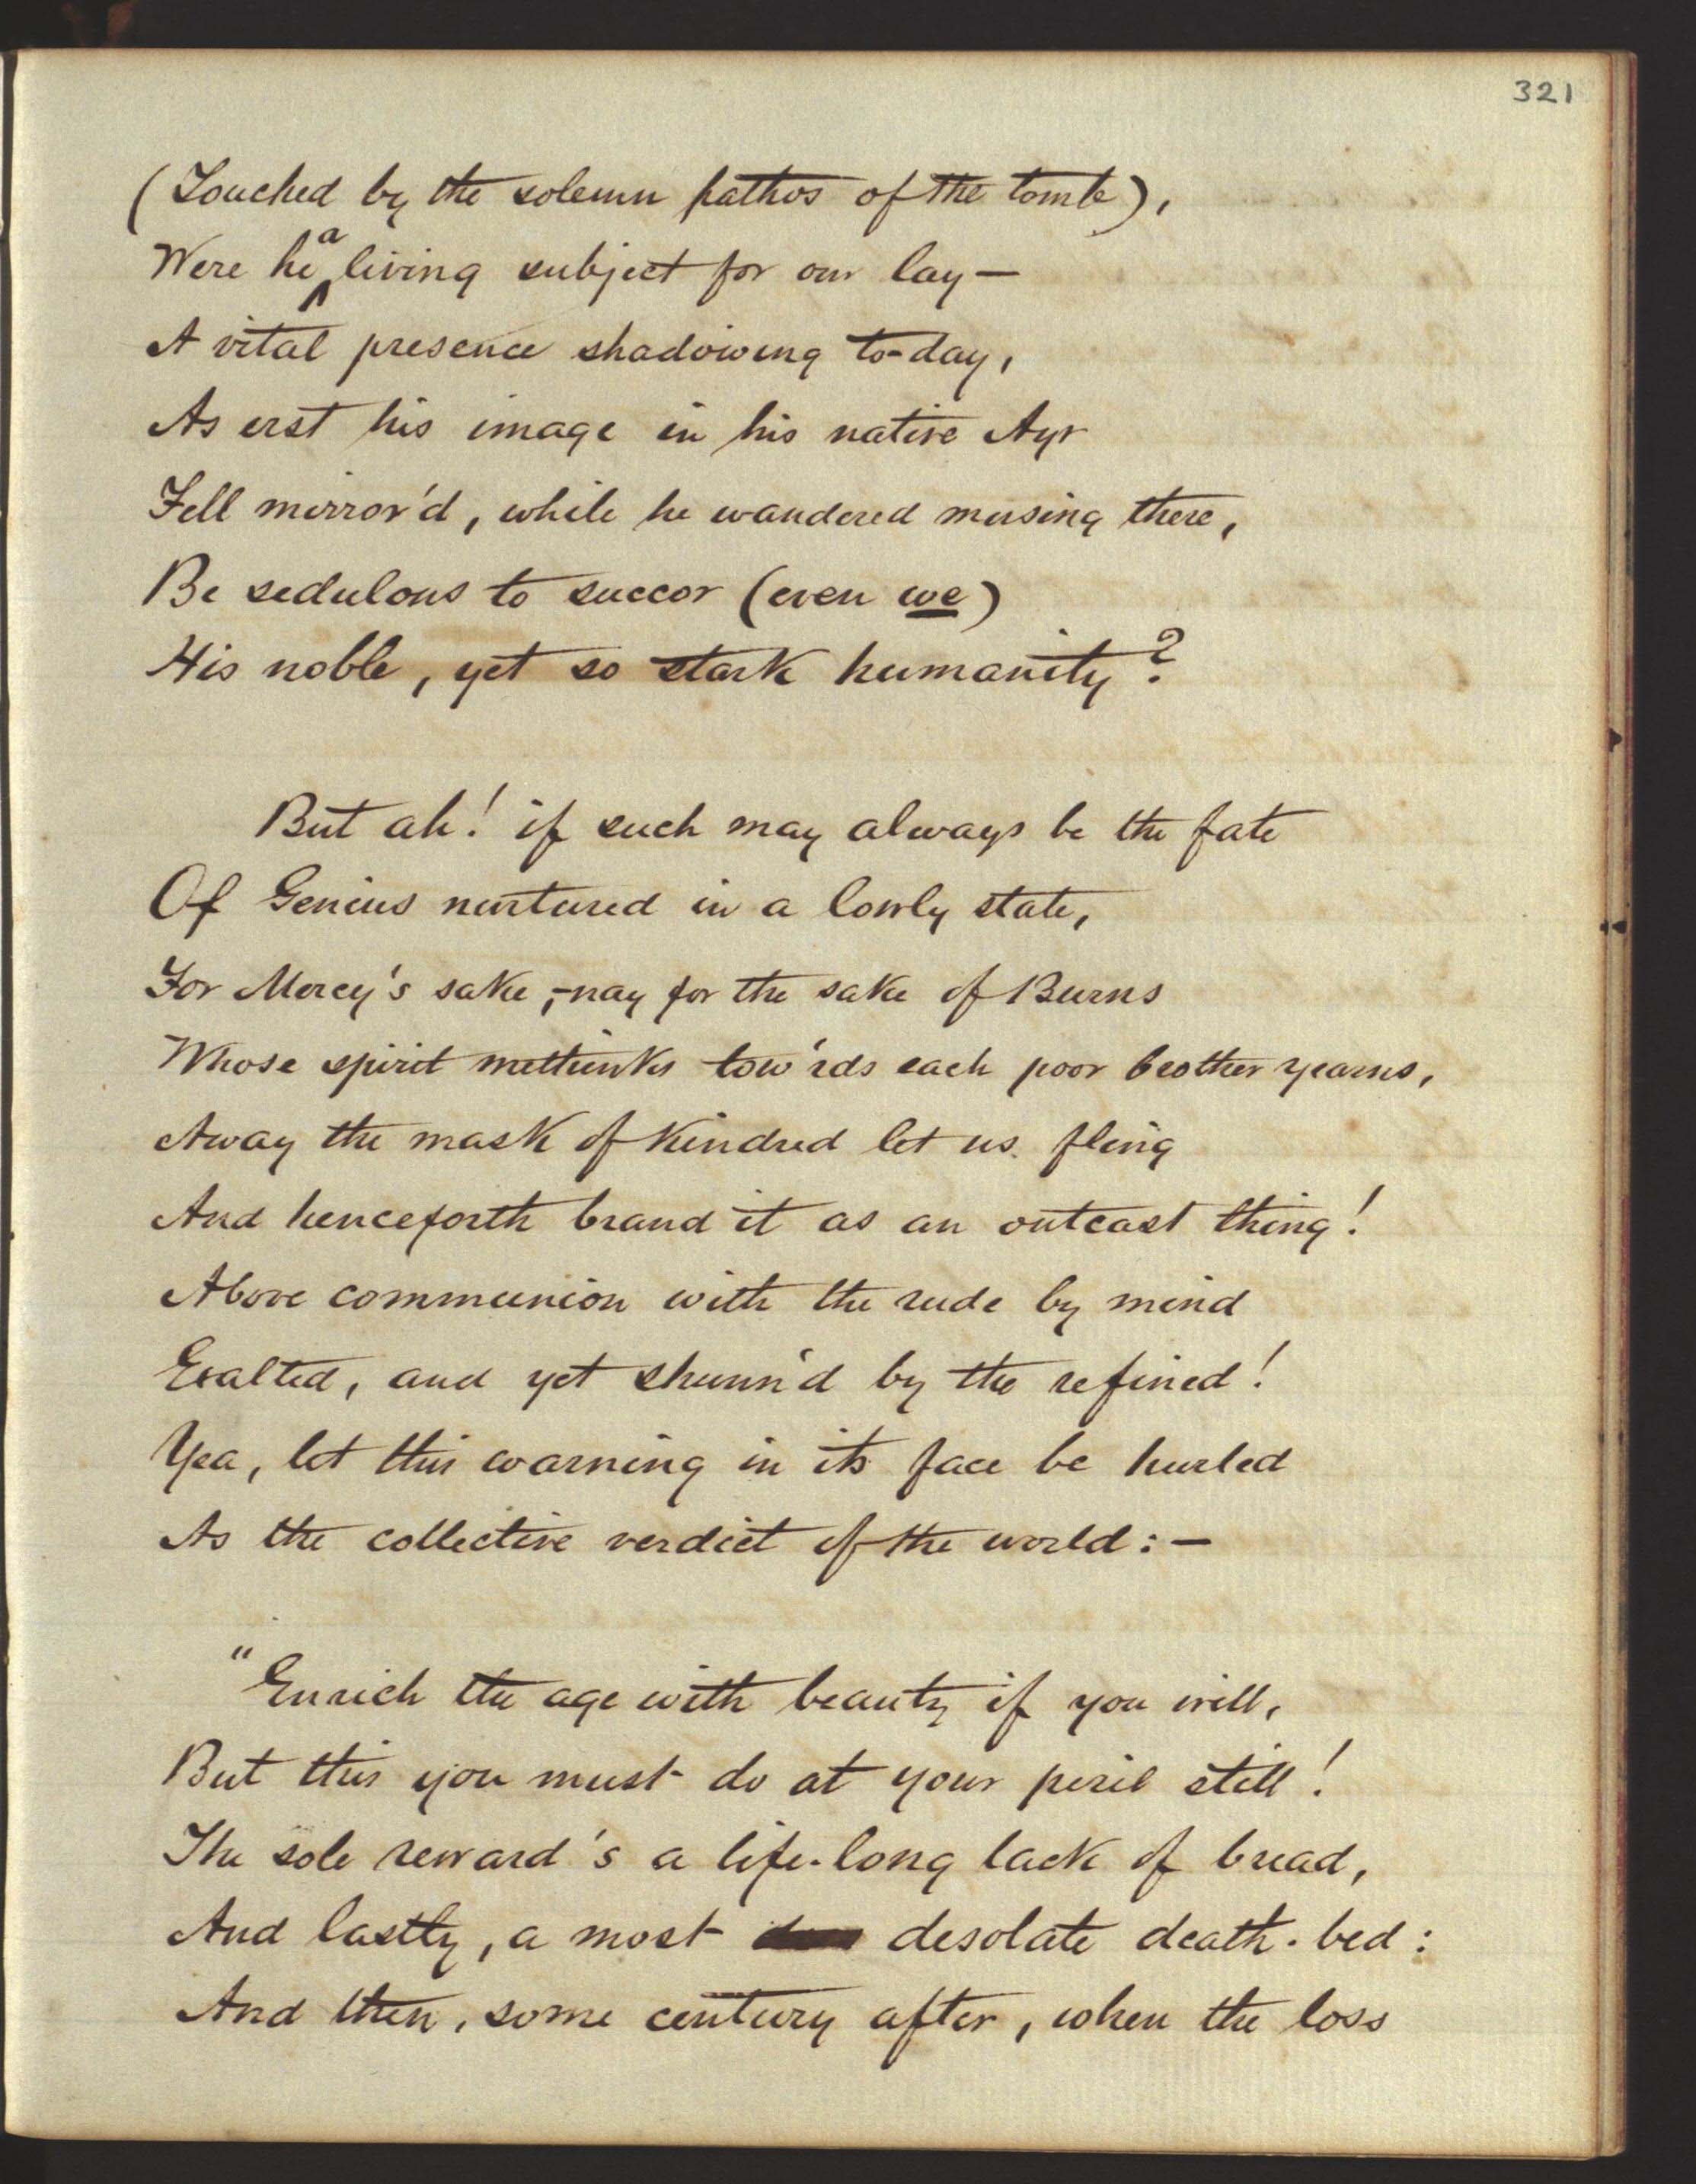 321
(Touched by the solemn pathos of the tomb),
Were he a living subject for our lay—
A vital presence shadowing to-day,
As erst his image in his native Ayr
Fell mirror'd, while he wandered musing there,
Be sedulous to succor (even we)
His noble, yet so stark humanity?
But ah! if such may always be the fate
Of Genius nurtured in a lowly state,
For Mercy's sake,—nay for the sake of Burns
Whose spirit methinks tow'rds each poor brother yearns,
Away the mask of kindred let us fling
And henceforth brand it as an outcast thing!
Above communion with the rude by mind
Exalted, and yet shunn'd by the refined!
Yea, let this warning in its face be hurled
As the collective verdict of the world:—
"Enrich the age with beauty if you will,
But this you must do at your peril still!
The sole reward's a life-long lack of bread,
And lastly, a most desolate death-bed:
And then, some century after, when the loss